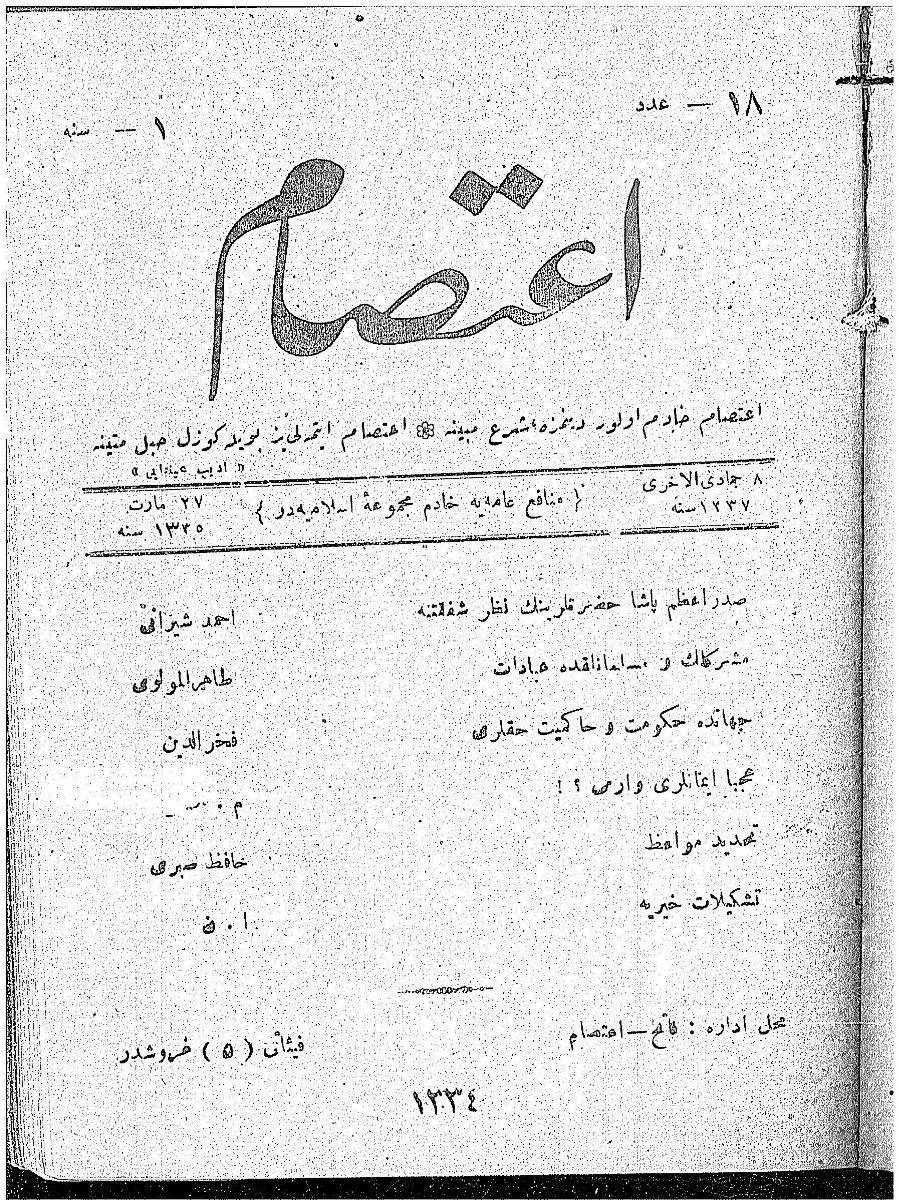 ١٨ — عدد
١ — سنه
اعتصام
اعتصام خادم اولور دینمزه، شرع مبینه ❀ اعتصام ایتمه‌لی‌یز بویله کوزل حبل متینه
« ادیب عینتابی »
٨ جمادی‌الاخری ١٣٣٧ سنه
{ منافع عامه‌یه خادم مجموعهٔ اسلامیه‌در }
٢٧ مارت ١٣٣٥ سنه
صدراعظم پاشا حضرتلرینك نظر شفقتنه احمد شیرانی
مشرکلك و مسلمانلقده عبادات طاهرالمولوی
جهانده حکومت و حاکمیت حقلری فخرالدین
عجبا ایمانلری وارمی ؟ ! م .
تجدید مواعظ حافظ صبری
تشکیلات خیریه ا . ن
محل اداره : فاتح — اعتصام
فیئاتی ( ٥ ) غروشدر
١٣٣٤